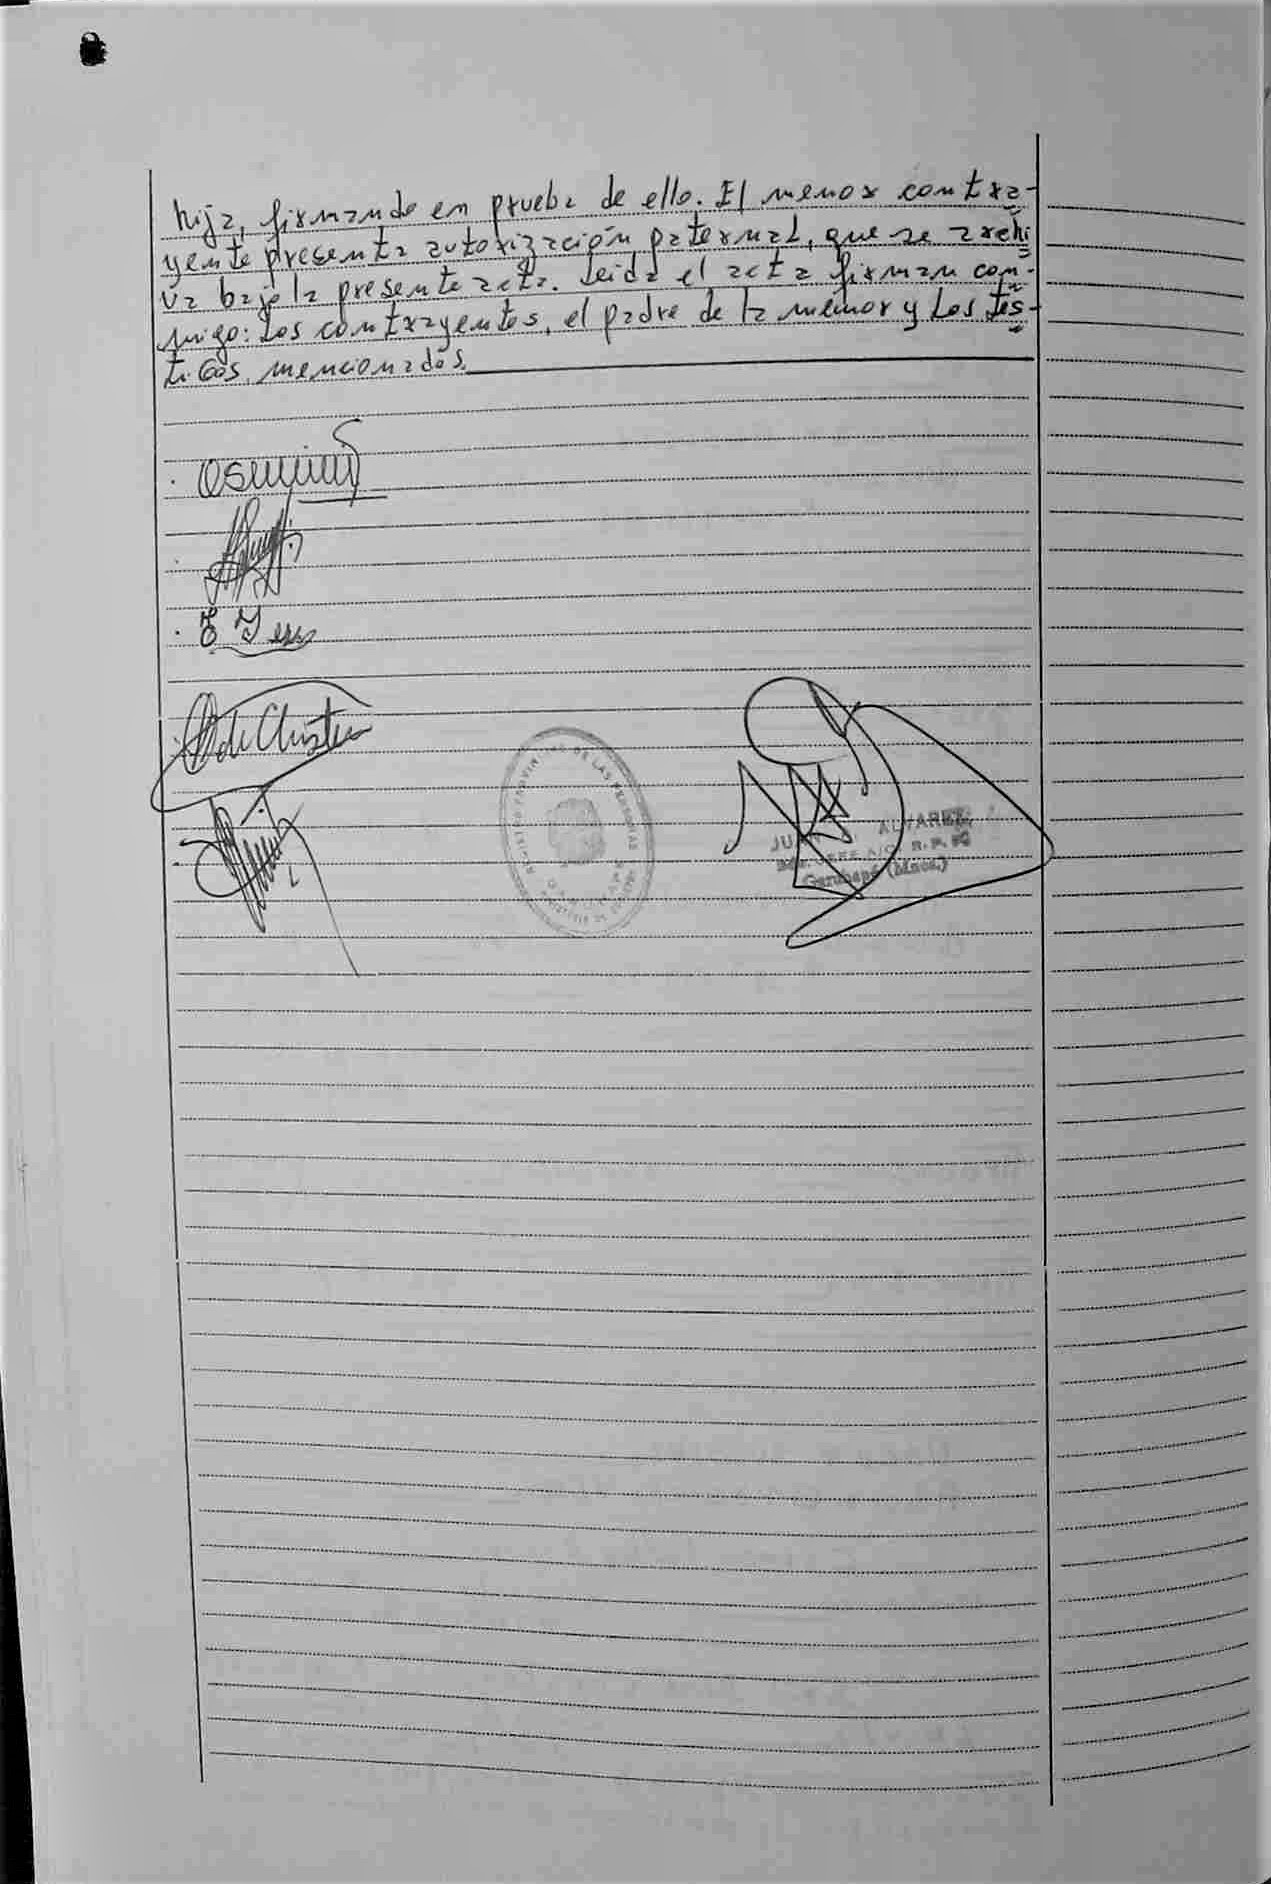 hija, firmando en prueba de ello. El menor contra-
yente presenta autorización paternal, que se archi
va bajo la presente acta. Leida el acta firman con-
migo: Los contrayentes, el padre de la menor y Los tes-
tigos mencionados.
DE LAS PERSONAS
ALVAREZ
JEFE R. P. P.
Garuhapé (Mnes.)